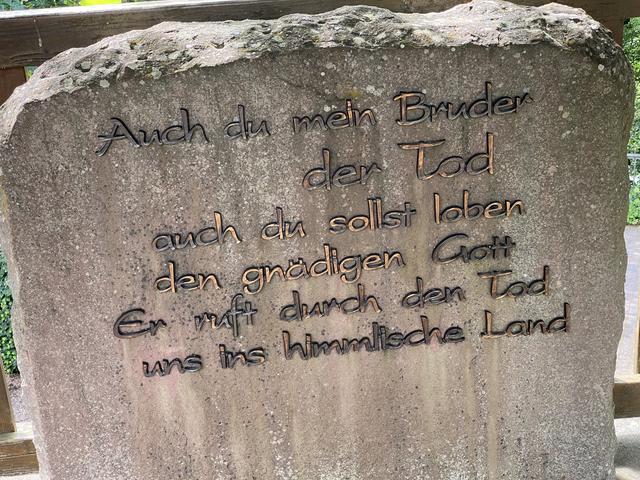 Auch du mein Bruder
der Tod
auch du sollst loben
den gnädigen Gott
Er ruft durch den Tod
uns ins himmlische Land